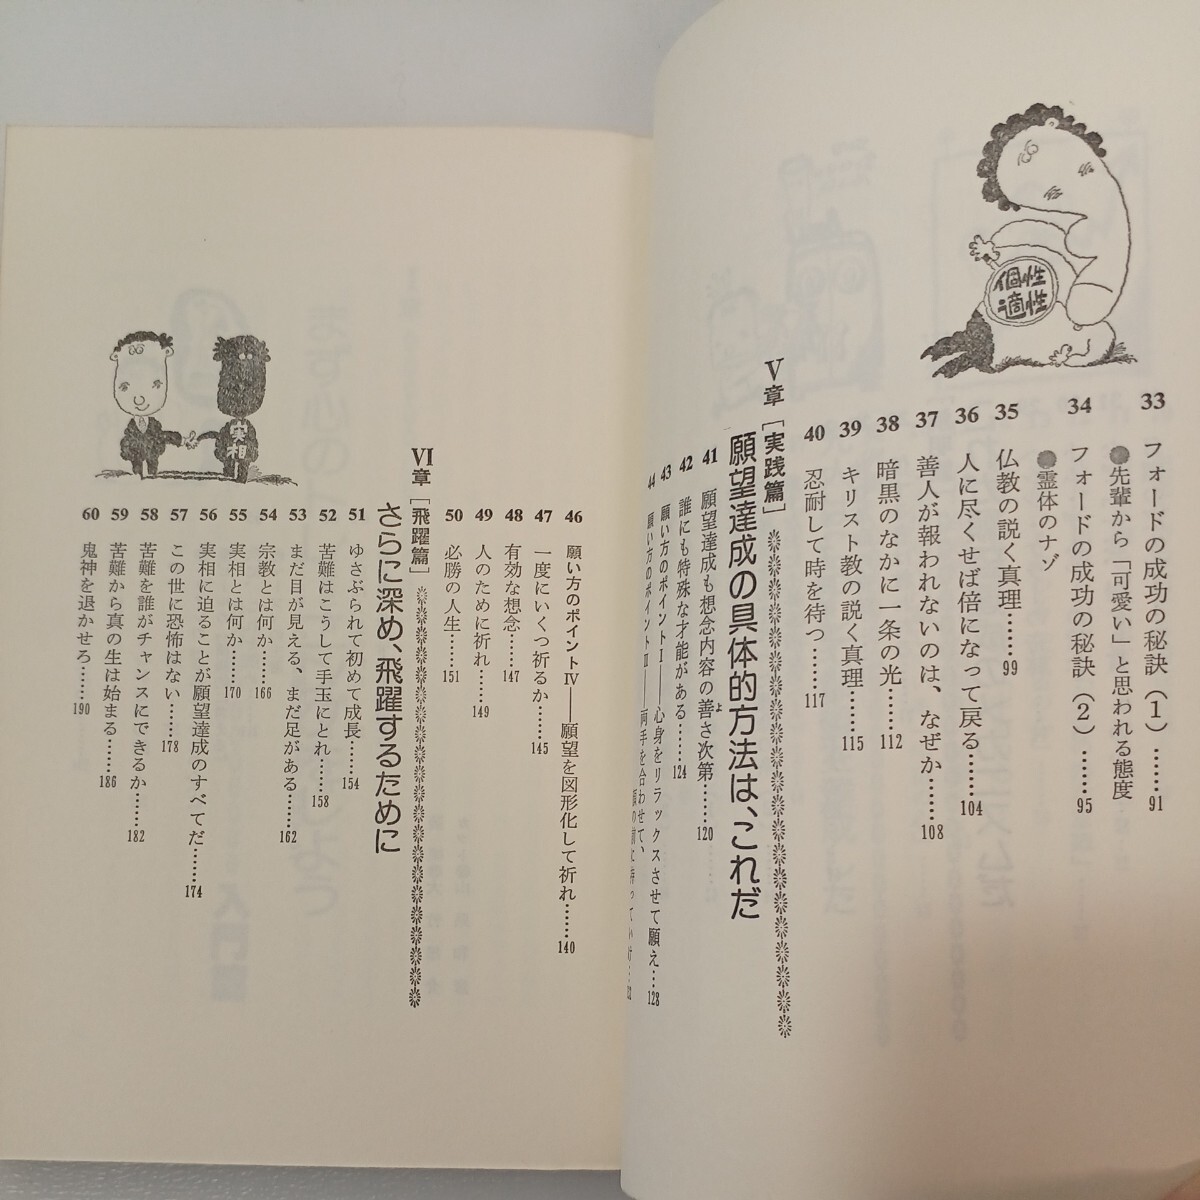 個性
適性
33 フォードの成功の秘訣（1）……91
●先輩から「可愛い」と思われる態度
34 フォードの成功の秘訣（2）……95
●霊体のナゾ
35 仏教の説く真理……99
36 人に尽くせば倍になって戻る……104
37 善人が報われないのは、なぜか……108
38 暗黒のなかに一条の光……112
39 キリスト教の説く真理……115
40 忍耐して時を待つ……117
V章［実践篇］
願望達成の具体的方法は、これだ
41 願望達成も想念内容の善さ次第……120
よ
42 誰にも特殊な才能がある……124
43 願い方のポイントⅠ――心身をリラックスさせて願え…128
44 願い方のポイントⅡ――両手を合わせて、
46 願い方のポイントⅣ――願望を図形化して祈れ……140
47 一度にいくつ祈るか……145
48 有効な想念……147
49 人のために祈れ……149
50 必勝の人生……151
VI章［飛躍篇］
さらに深め、飛躍するために
51 ゆさぶられて初めて成長……154
52 苦難はこうして手玉にとれ……158
53 まだ目が見える、まだ足がある……162
54 宗教とは何か……166
55 実相とは何か……170
56 実相に迫ることが願望達成のすべてだ……174
57 この世に恐怖はない……178
58 苦難を誰がチャンスにできるか……182
59 苦難から真の生は始まる……186
60 鬼神を退かせろ……190
実相